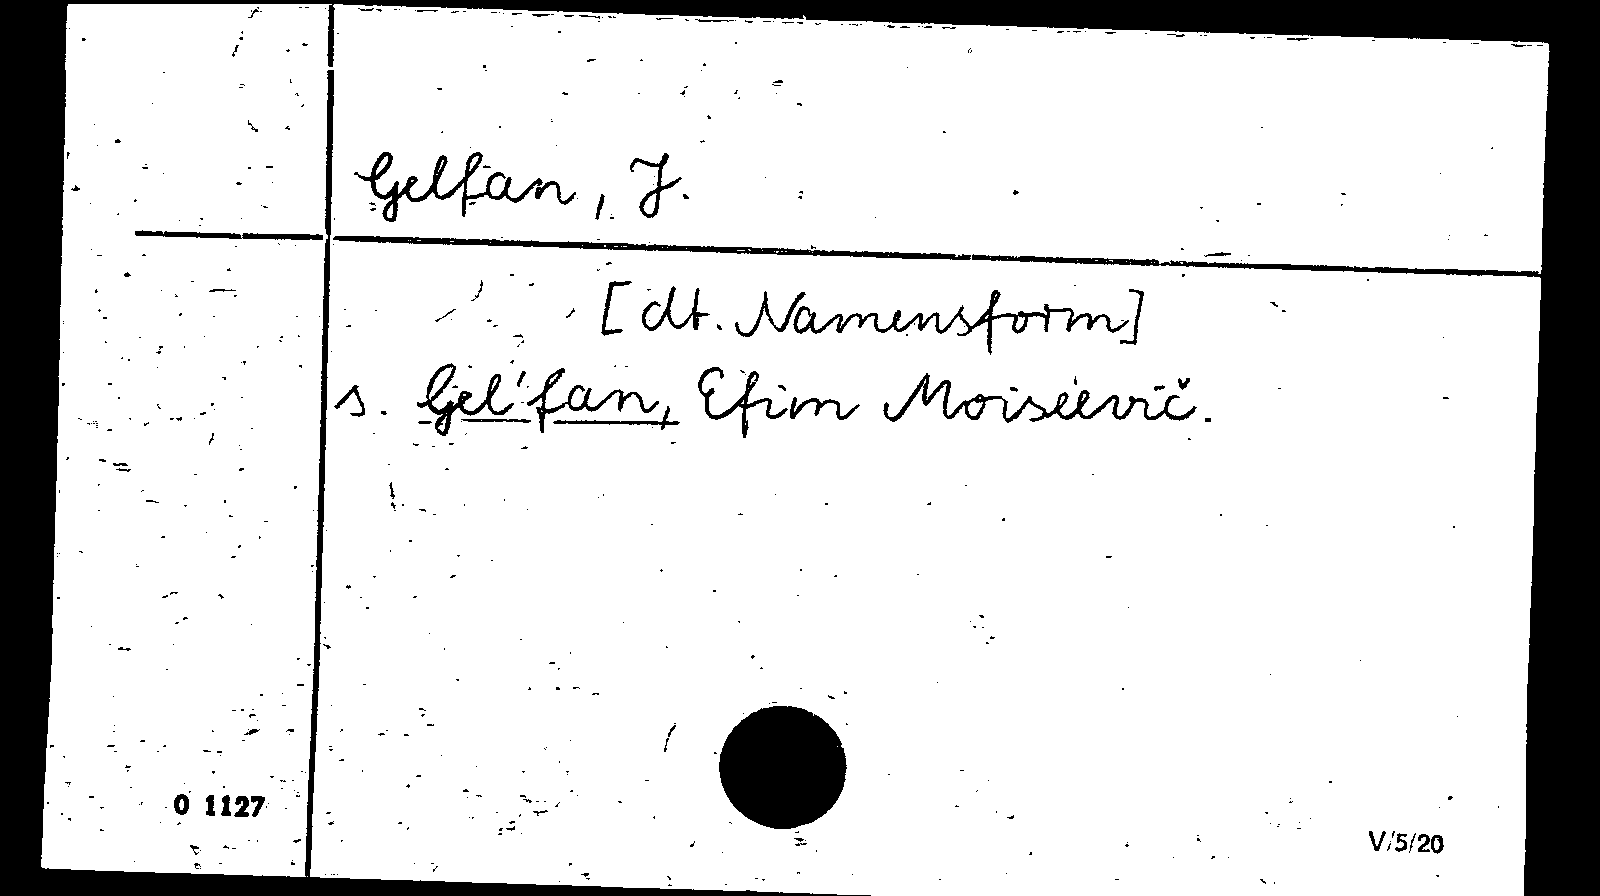 Gelfan, J.
[dt. Namensform]
s. Gel'fan, Efim Moiseevič.
O 1127
V/5/20